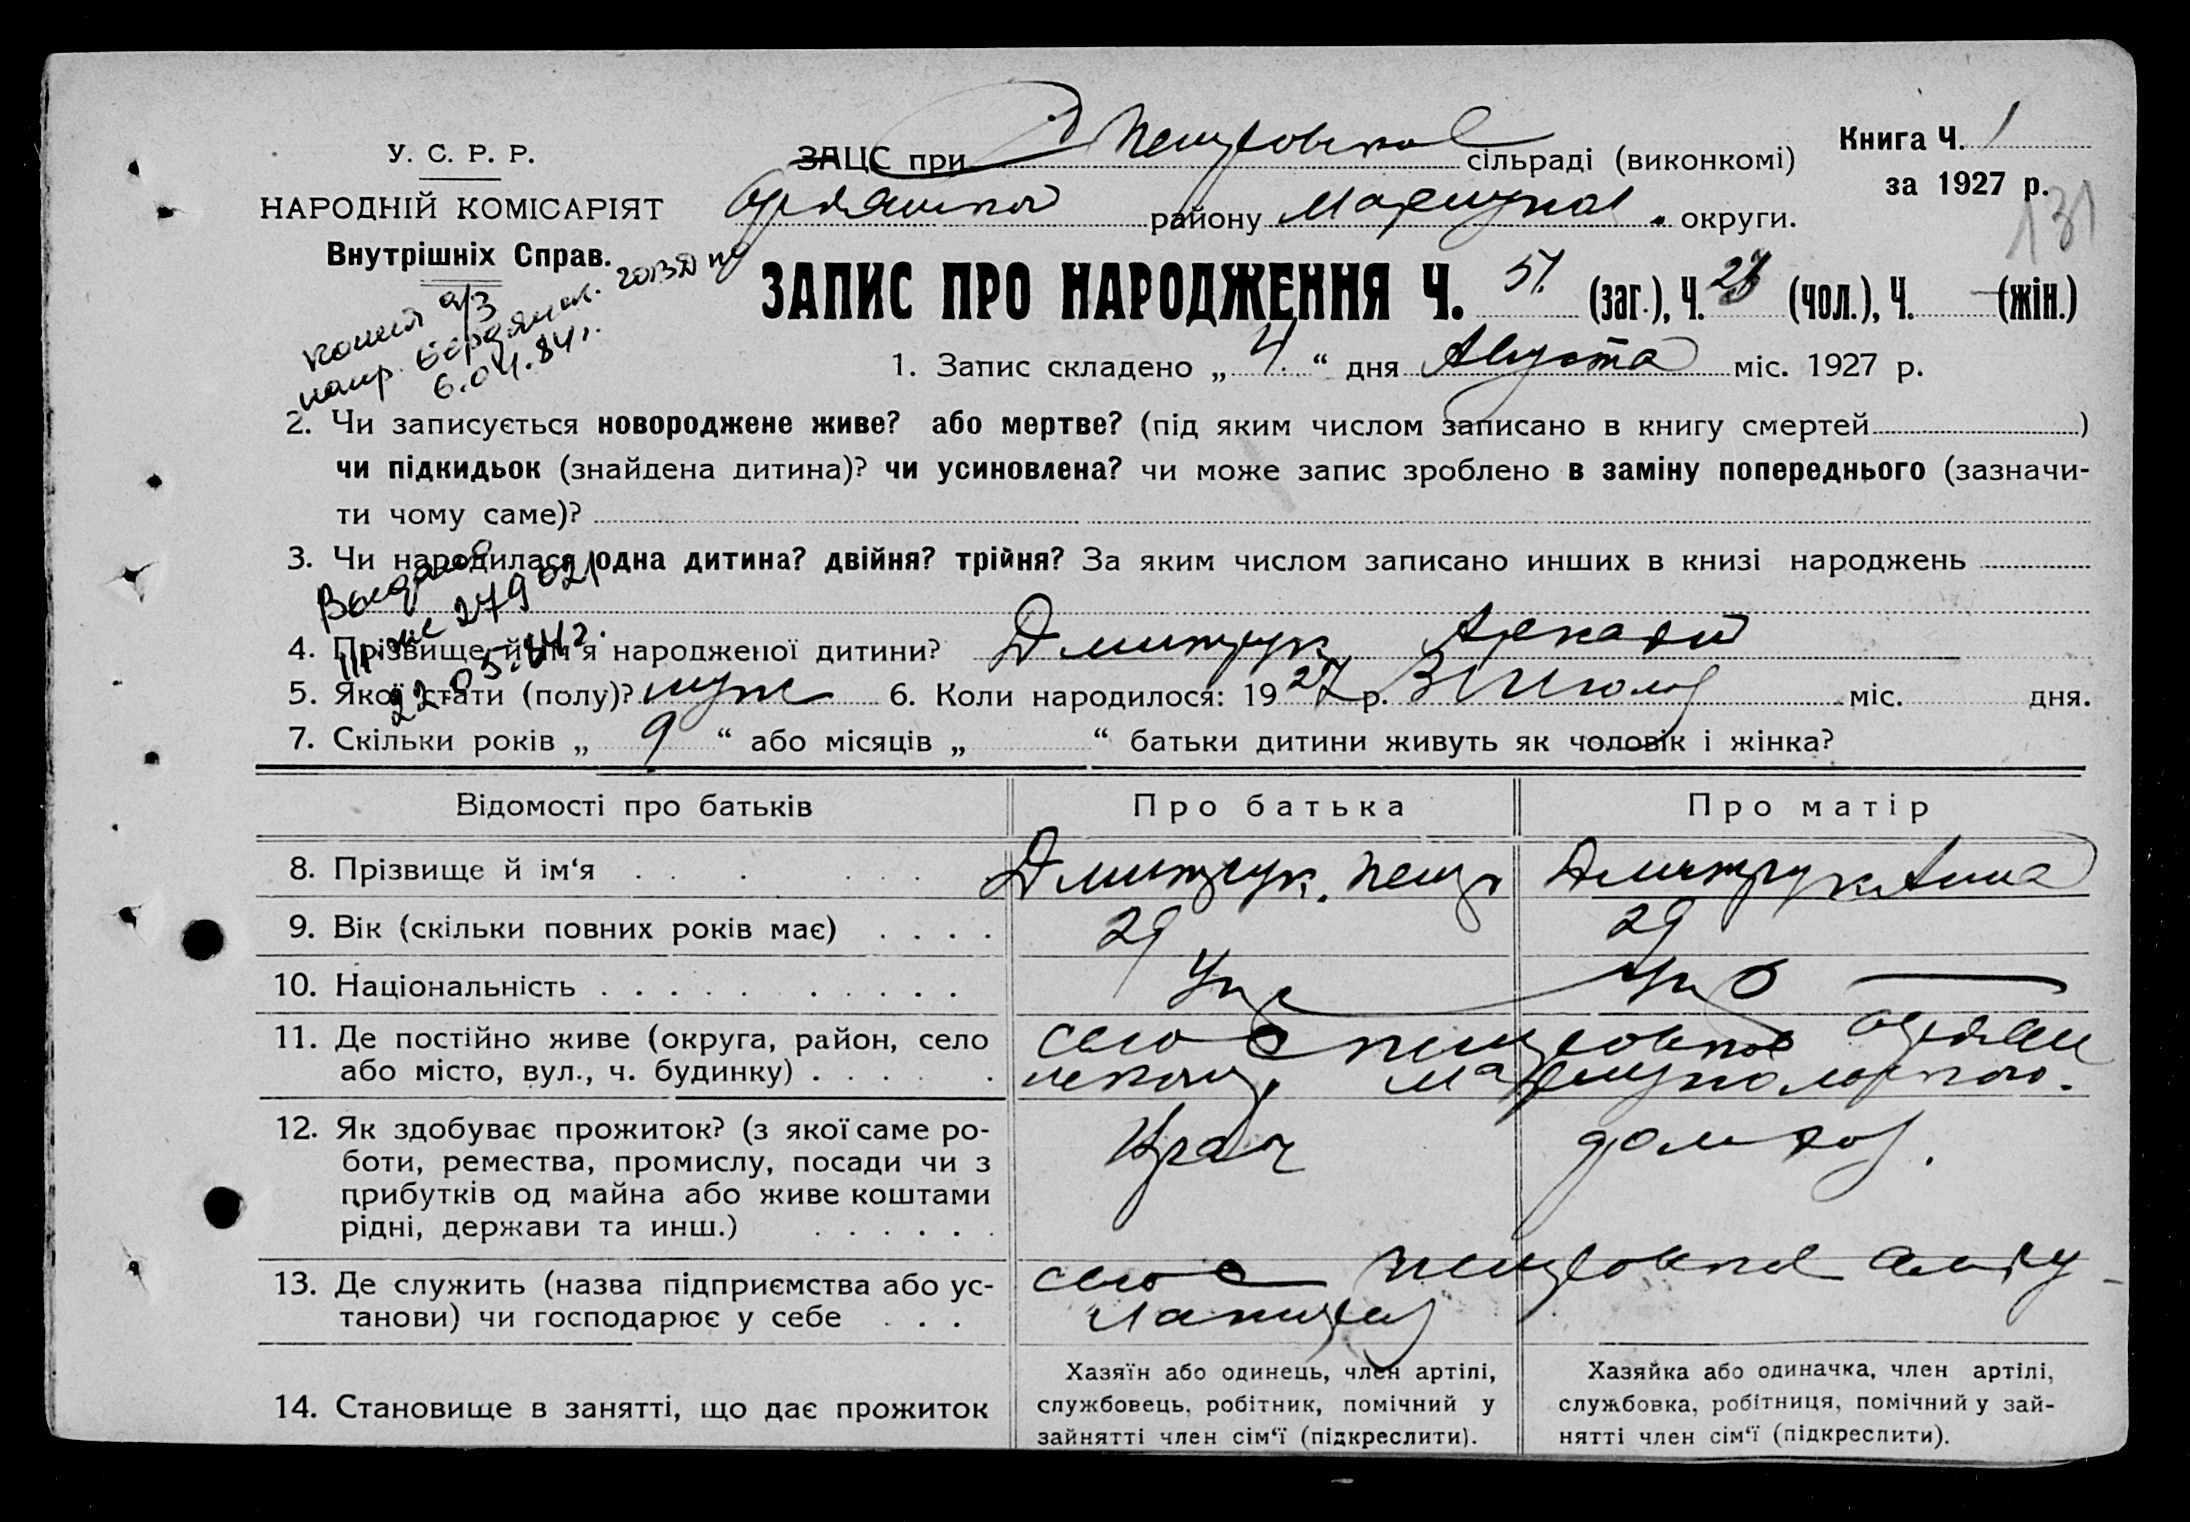 У. С. Р. Р.
НАРОДНІЙ КОМІСАРІЯТ
Внутрішніх Справ.
ЗАЦС при сільраді (виконкомі)
району округи.
Книга Ч. 1
за 1927 р.
131
ЗАПИС ПРО НАРОДЖЕННЯ Ч. 51. (заг.), Ч. (чол.), Ч. — (жін.)
6.04.84г.
1. Запис складено „ 4 “ дня Августа міс. 1927 р.
2. Чи записується новороджене живе? або мертве? (під яким числом записано в книгу смертей )
чи підкидьок (знайдена дитина)? чи усиновлена? чи може запис зроблено в заміну попереднього (зазначи-
ти чому саме)?
3. Чи народилася одна дитина? двійня? трійня? За яким числом записано инших в книзі народжень
279021
22.05.84г.
4. Прізвище й ім'я народженої дитини? Дмитрук Аркадий
5. Якої статі (полу)? муж 6. Коли народилося: 1927 р. міс. дня.
7. Скільки років „ 9 “ або місяців „ “ батьки дитини живуть як чоловік і жінка?
Відомості про батьків Про батька Про матір
8. Прізвище й ім'я Дмитрук Петр Дмитрук Анна
9. Вік (скільки повних років має) 29 29
10. Національність Укр Укр
11. Де постійно живе (округа, район, село село
або місто, вул., ч. будинку)
12. Як здобуває прожиток? (з якої саме ро-
боти, ремества, промислу, посади чи з
прибутків од майна або живе коштами
рідні, держави та инш.)
13. Де служить (назва підприємства або ус- село
танови) чи господарює у себе
14. Становище в занятті, що дає прожиток
Хазяїн або одинець, член артілі,
службовець, робітник, помічний у
зайнятті член сім'ї (підкреслити).
Хазяйка або одиначка, член артілі,
службовка, робітниця, помічний у зай-
нятті член сім'ї (підкреслити).